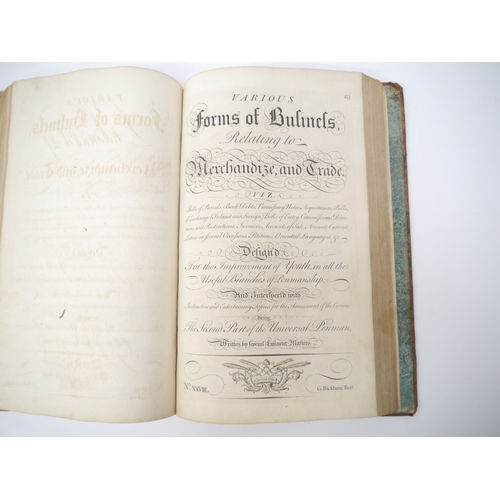 VARIOUS
Forms of Busineſs,
Relating to
Merchandize, and Trade.
VIZ.
Bills of Parcels, Book Debts, Promiſsory Notes, Acquittances, Bills
of Exchange Inland and Foreign, Bills of Entry, Commiſsions,
Invoices, Accounts of Sale, Accounts Current,
Letters on ſeveral Occaſions, Petitions, Oriental Languages, &c.
Deſign'd
For the Improvement of Youth, in all the
Uſeful Branches of Penmanſhip,
And Interſpers'd with
Inſtructive and Entertaining Topics for the Amuſement of the Curious
Being
The Second Part of the Univerſal Penman,
Written by ſeveral Eminent Maſters.
No. XXVIII.
G. Bickham ſculp.